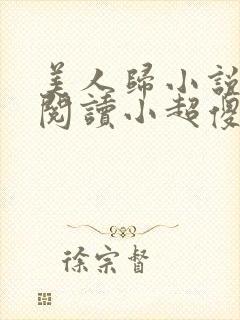 美人歸小說
閱讀小超傻
徐宗督